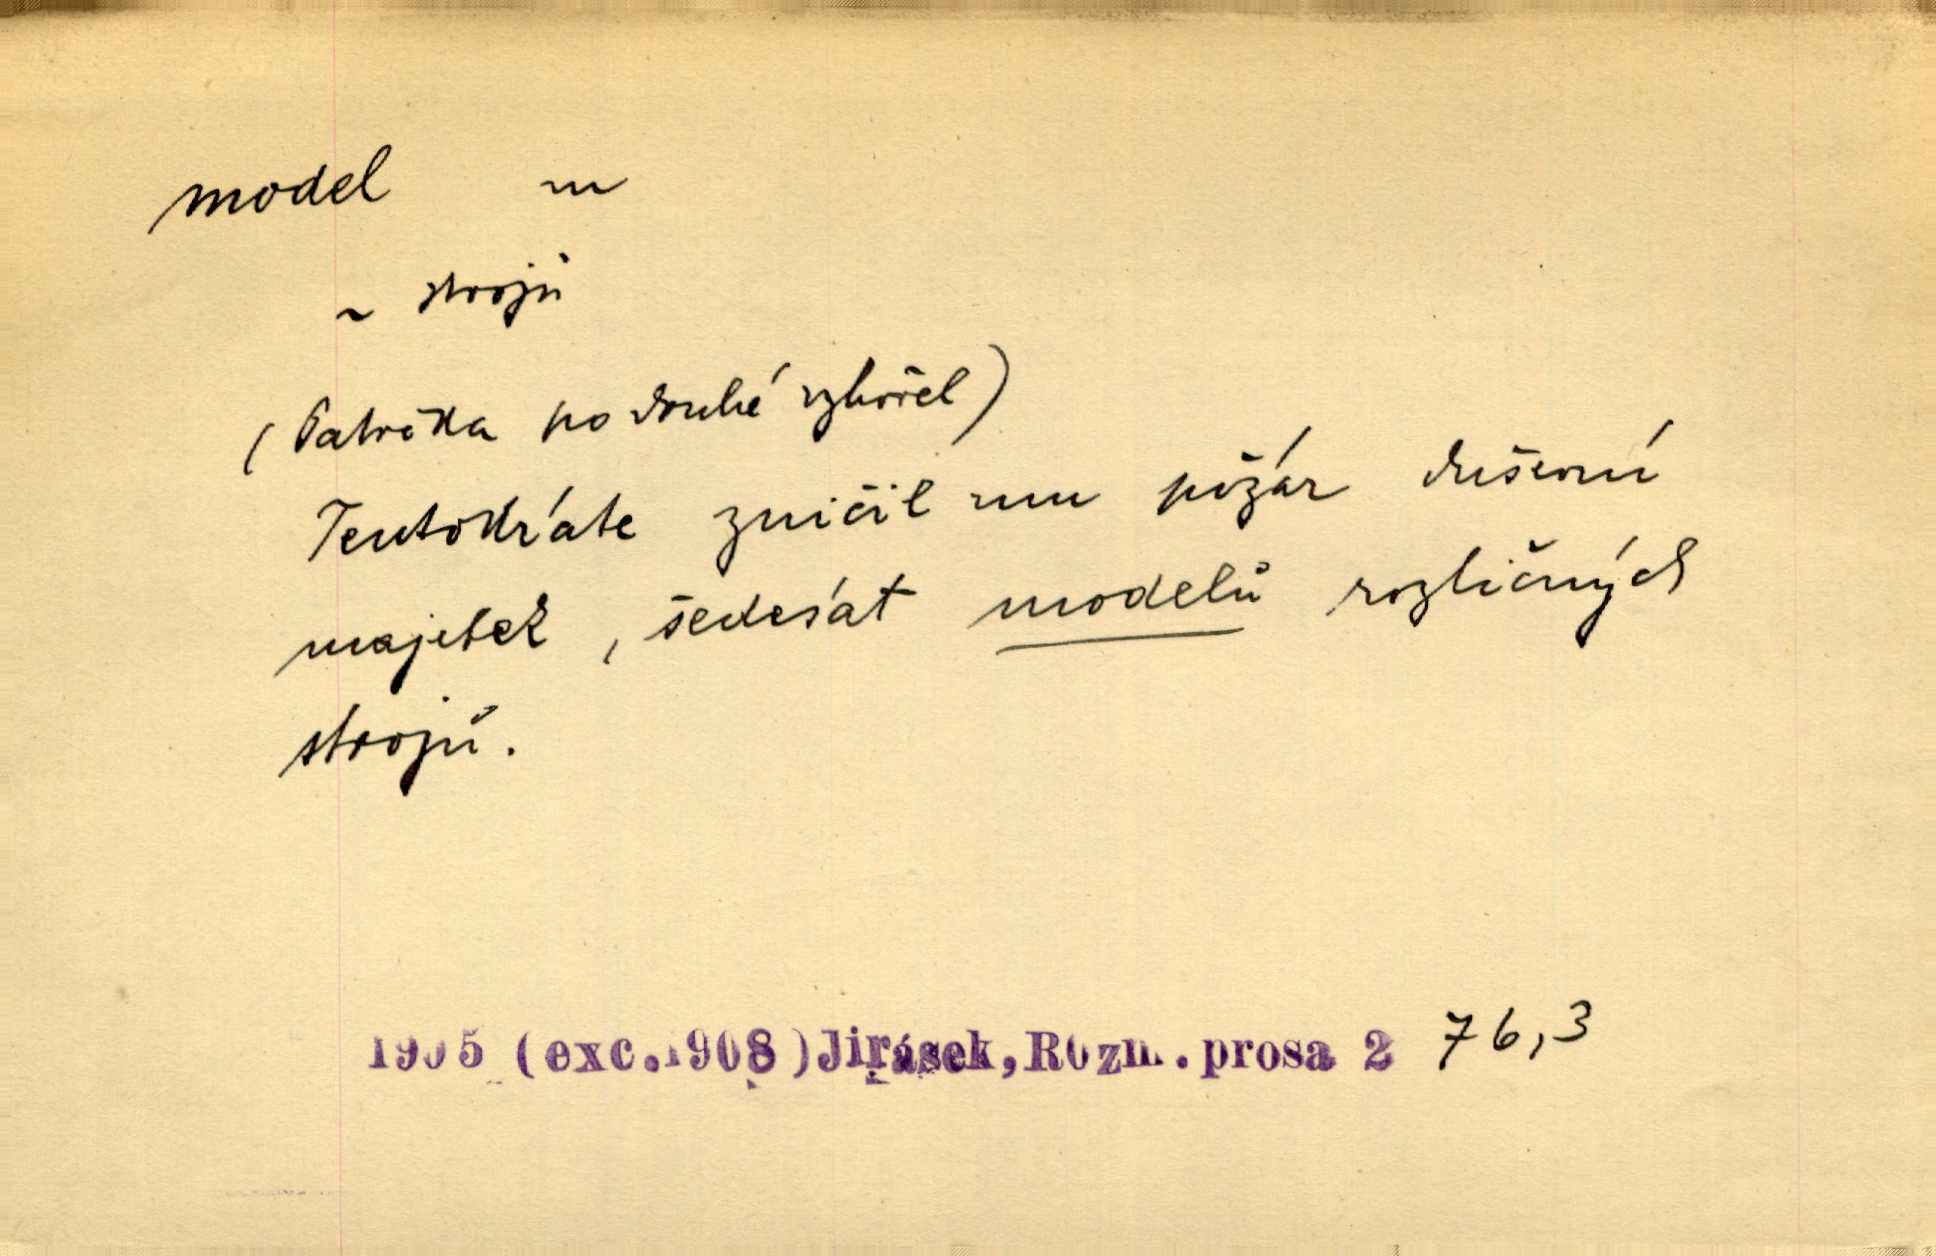 model m
~ strojů
(Patrčka po druhé vyhořel)
Tentokráte zničil mu požár duševní
majetek, šedesát modelů rozličných
strojů.
1905 (exc.1908)Jirásek, Rozm.prosa 2 76,3